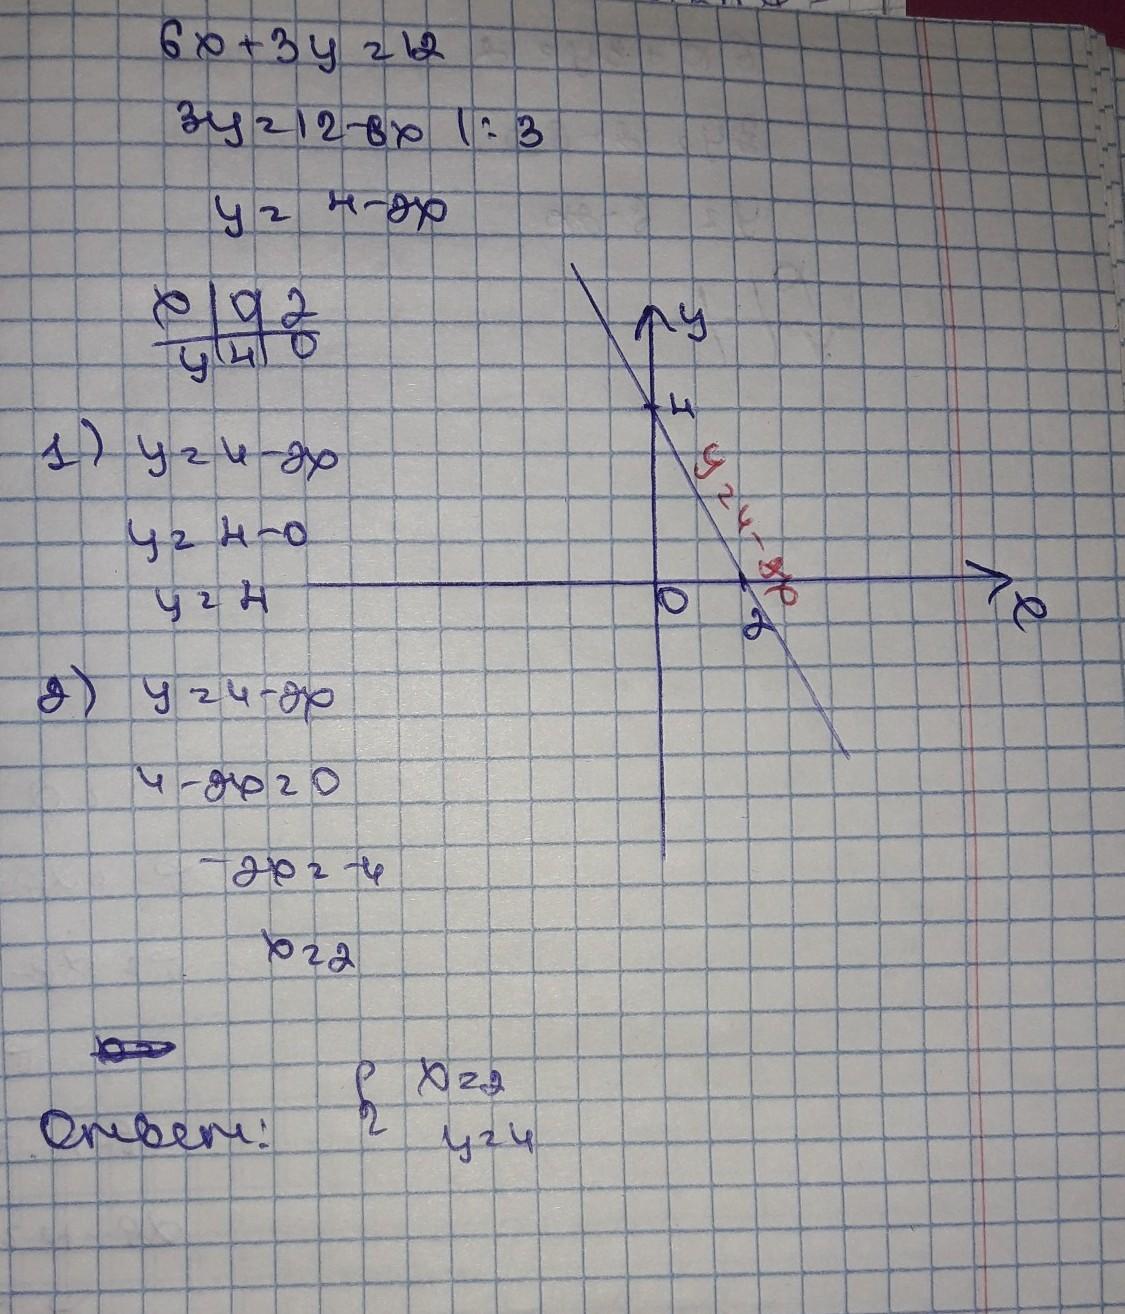 6x+3y=12
3y=12-6x |:3
y=4-2x
x | 0 | 2
y | 4 | 0
1) y=4-2x
y=4-0
y=4
2) y=4-2x
4-2x=0
-2x=-4
x=2
Ответ: { x=2
y=4
y
4
y=4-2x
0
2
x